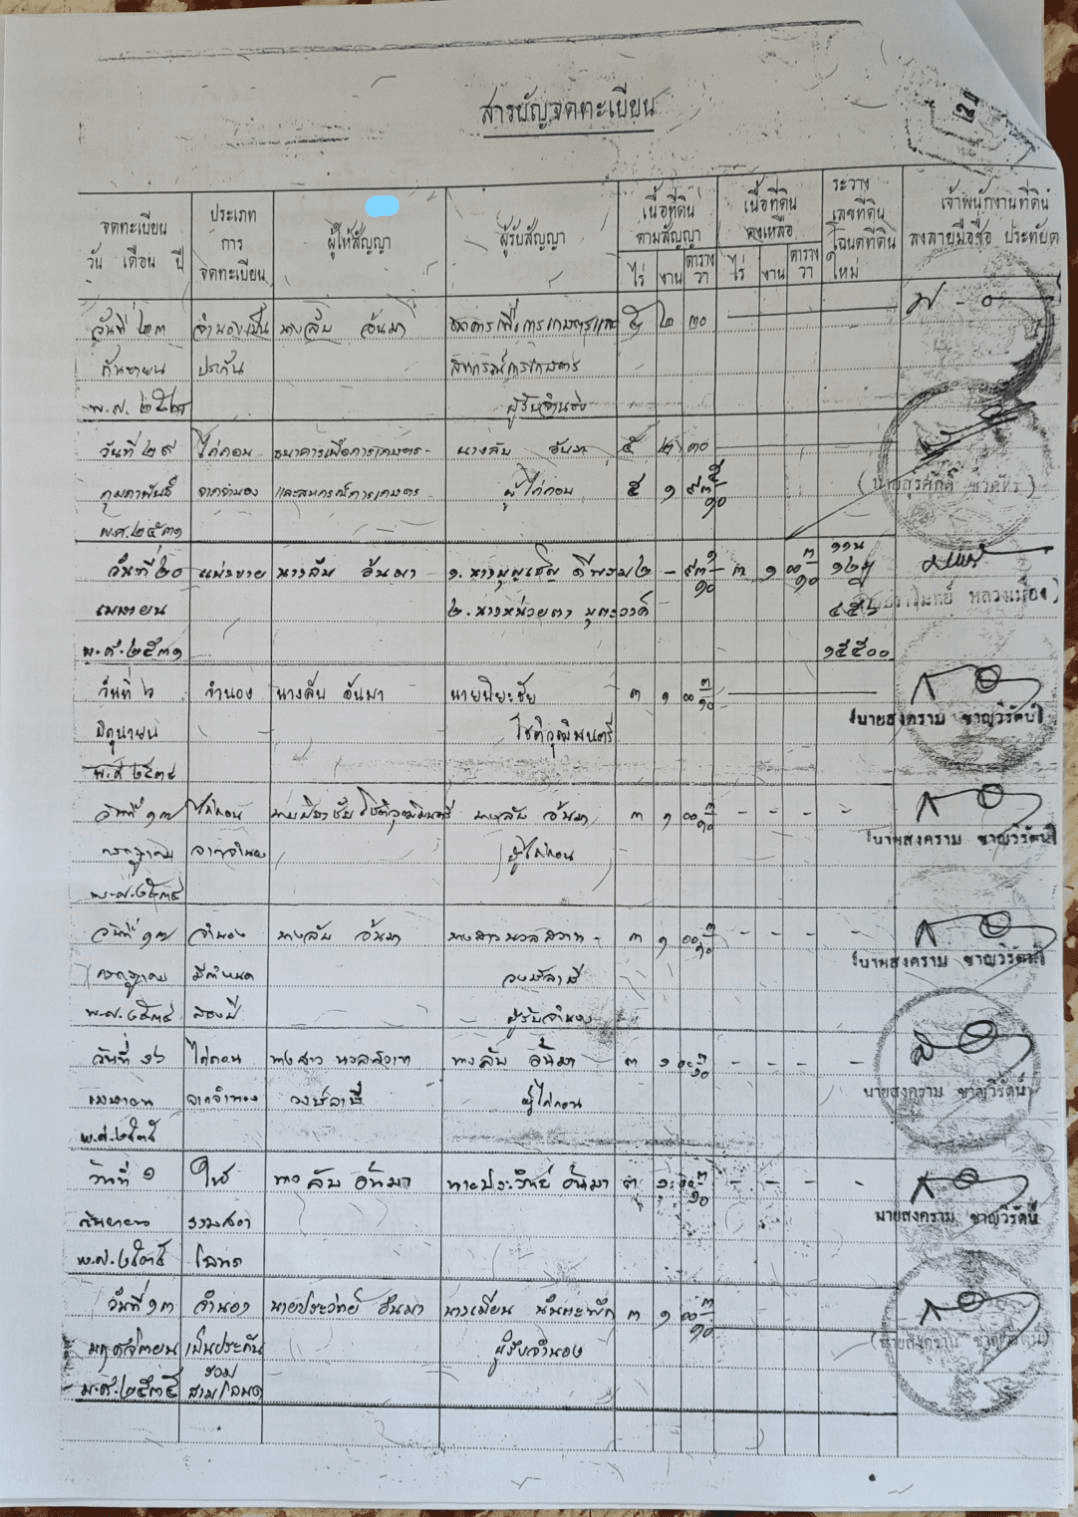 สารบัญจดทะเบียน
จดทะเบียน
วัน เดือน ปี
ประเภท
การ
จดทะเบียน
ผู้ให้สัญญา
ผู้รับสัญญา
เนื้อที่ดิน
ตามสัญญา
ไร่ งาน ตาราง
วา
เนื้อที่ดิน
คงเหลือ
ไร่ งาน ตาราง
วา
ระวาง
เลขที่ดิน
โฉนดที่ดิน
ใหม่
เจ้าพนักงานที่ดิน
ลงลายมือชื่อ ประทับตรา
วันที่ ๒๓ จำนองเป็น นางลับ อันมา ธนาคารเพื่อการเกษตรและ ๕ ๒ ๓๐
กันยายน ประกัน สหกรณ์การเกษตร
พ.ศ. ผู้รับจำนอง
วันที่ ๒๙ ไถ่ถอน ธนาคารเพื่อการเกษตร- นางลับ อันมา ๕ ๒ ๓๐
กุมภาพันธ์ จากจำนอง และสหกรณ์การเกษตร ผู้ไถ่ถอน ๕ ๑
พ.ศ.๒๕๓๑
วันที่ ๒๐ แบ่งขาย นางลับ อันมา ๑. นางบุญเชิญ ๒ - ๓ ๑
เมษายน ๒. นางหน่วยตา
พ.ศ.๒๕๓๑ ๑๕๕๐๐
วันที่ ๖ จำนอง นางลับ อันมา นายปิยะชัย ๓ ๑ ๐๐ ๓/๑๐
(นายสงคราม ชาญวิรัตน์)
มิถุนายน โชติวุฒิมนตรี
พ.ศ ๒๕๓๔
วันที่ ๑๗ ไถ่ถอน นายปิยะชัย โชติวุฒิมนตรี นางลับ อันมา ๓ ๑ ๐๐ ๓/๑๐ - - - -
นายสงคราม ชาญวิรัตน์)
กรกฎาคม จากจำนอง ผู้ไถ่ถอน
พ.ศ.๒๕๓๔
วันที่ ๑๗ จำนอง นางลับ อันมา นางสาวนวลสวาท - ๓ ๑ ๐๐ ๓/๑๐ - - - -
(นายสงคราม ชาญวิรัตน์)
กรกฎาคม มีกำหนด วงษ์ลาสี
พ.ศ.๒๕๓๔ สองปี ผู้รับจำนอง
วันที่ ๑๖ ไถ่ถอน นางสาว นวลสวาท นางลับ อันมา ๓ ๑ ๐๐ ๓/๑๐ - - - -
เมษายน จากจำนอง วงษ์ลาสี ผู้ไถ่ถอน
นายสงคราม ชาญวิรัตน์)
พ.ศ.๒๕๓๕
วันที่ ๑ ให้ นางลับ อันมา นายประวิทย์ อันมา ๓ ๑ ๐๐ ๓/๑๐ - - - -
นายสงคราม ชาญวิรัตน์
กันยายน รวมสอง
พ.ศ.๒๕๓๕ โฉนด
วันที่ ๑๓ จำนอง นายประวิทย์ อันมา นางเมียน ๓ ๑ ๐๐ ๓/๑๐
(นายสงคราม ชาญวิรัตน์)
พฤศจิกายน เป็นประกัน ผู้รับจำนอง
รวม
พ.ศ.๒๕๓๕ สามโฉนด